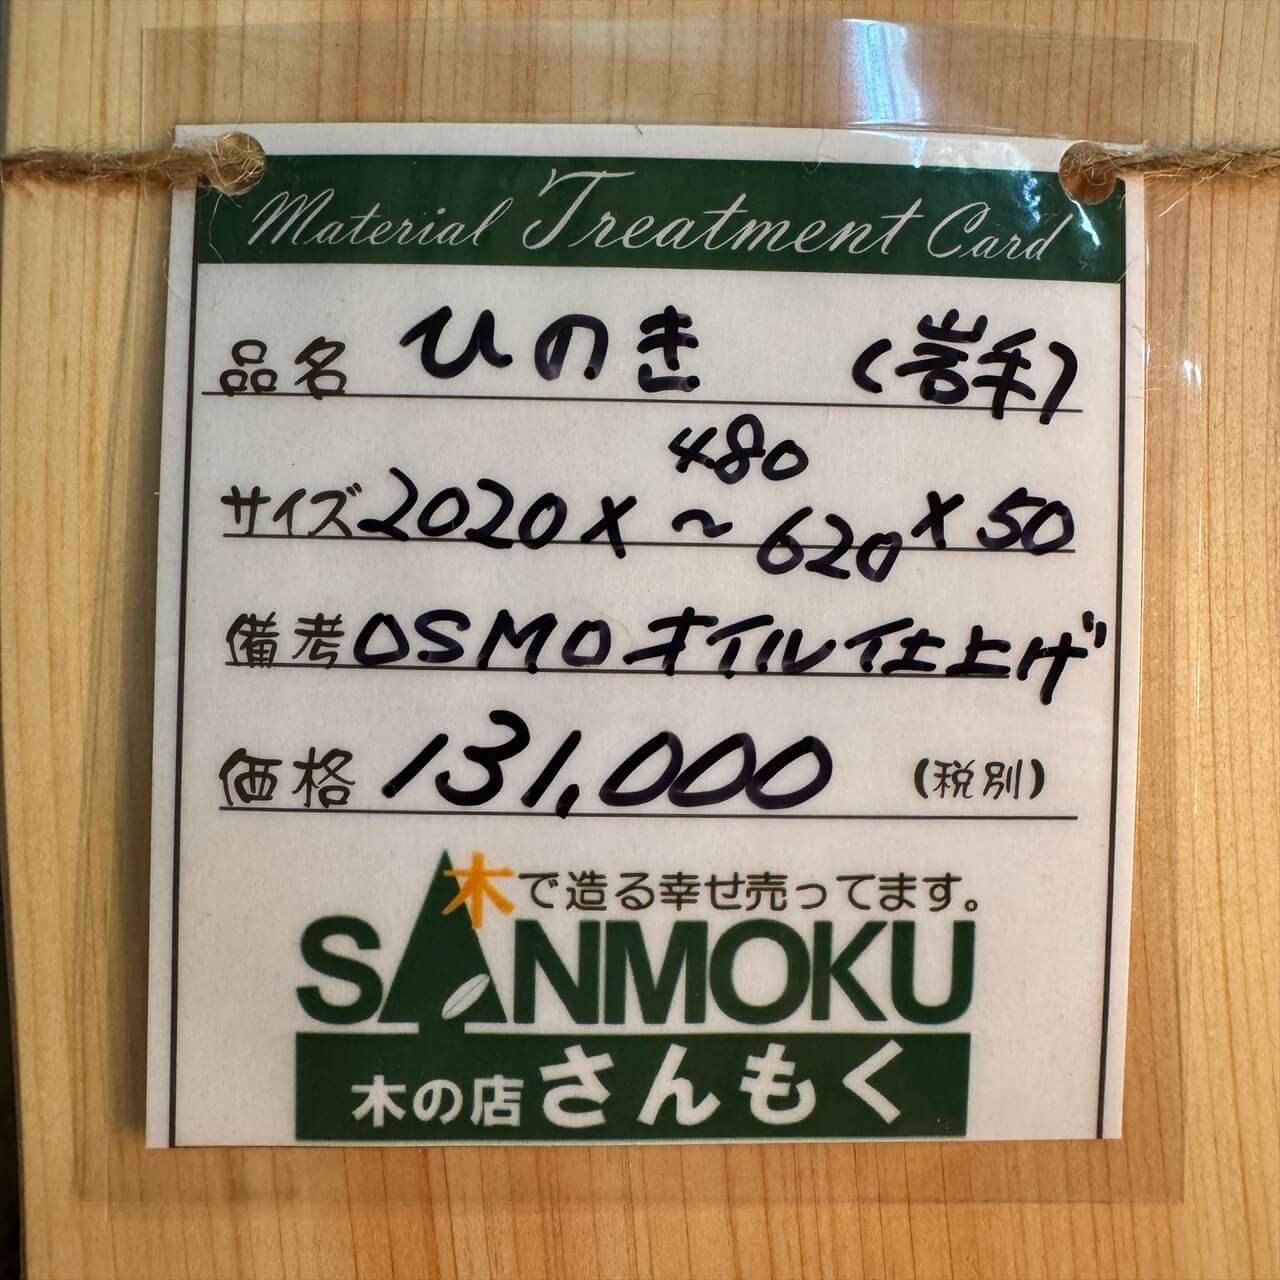 Material Treatment Card
品名 ひのき (岩手)
サイズ 2020 × 480 ～ 620 × 50
備考 OSMO オイル仕上げ
価格 131,000 (税別)
木で造る幸せ売ってます。
SANMOKU
木の店 さんもく